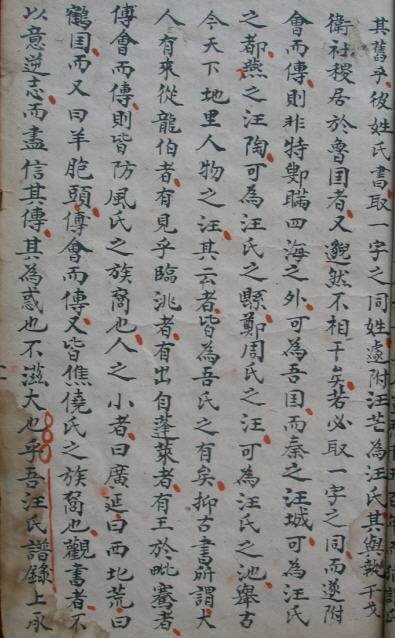 其舊乎彼姓氏書取一字之同姓遂附汪芒為汪氏其與執干戈
衛社稷居於魯国者又邈然不相干矣若必取一字之同而遂附
會而傳則非特鄋瞞四海之外可為吾国而秦之汪城可為汪氏
之都燕之汪陶可為汪氏之縣鄭周氏之汪可為汪氏之池舉古
今天下地里人物之汪其云者皆為吾氏之有矣抑古書所謂大
人有來從龍伯者有見乎臨洮者有出自蓬萊者有王於毗騫者
傳會而傳則皆防風氏之族裔也人之小者曰廣延曰西北荒曰
鶴国而又曰羊胞頭傳會而傳又皆僬僥氏之族裔也觀書者不
以意逆志而盡信其傳其為惑也不滋大也乎吾汪氏譜錄上承